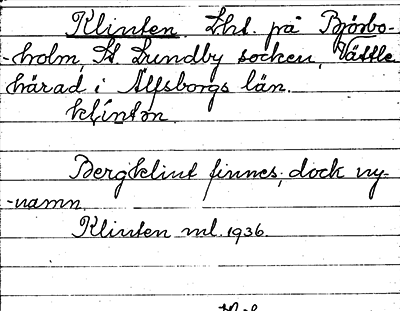 Klinten. Lht. på Björbo-
-holm, St. Lundby socken, Vättle
härad i Älfsborgs län.
klíntən.
Bergklint finnes, dock ny-
-namn.
Klinten ml. 1936.